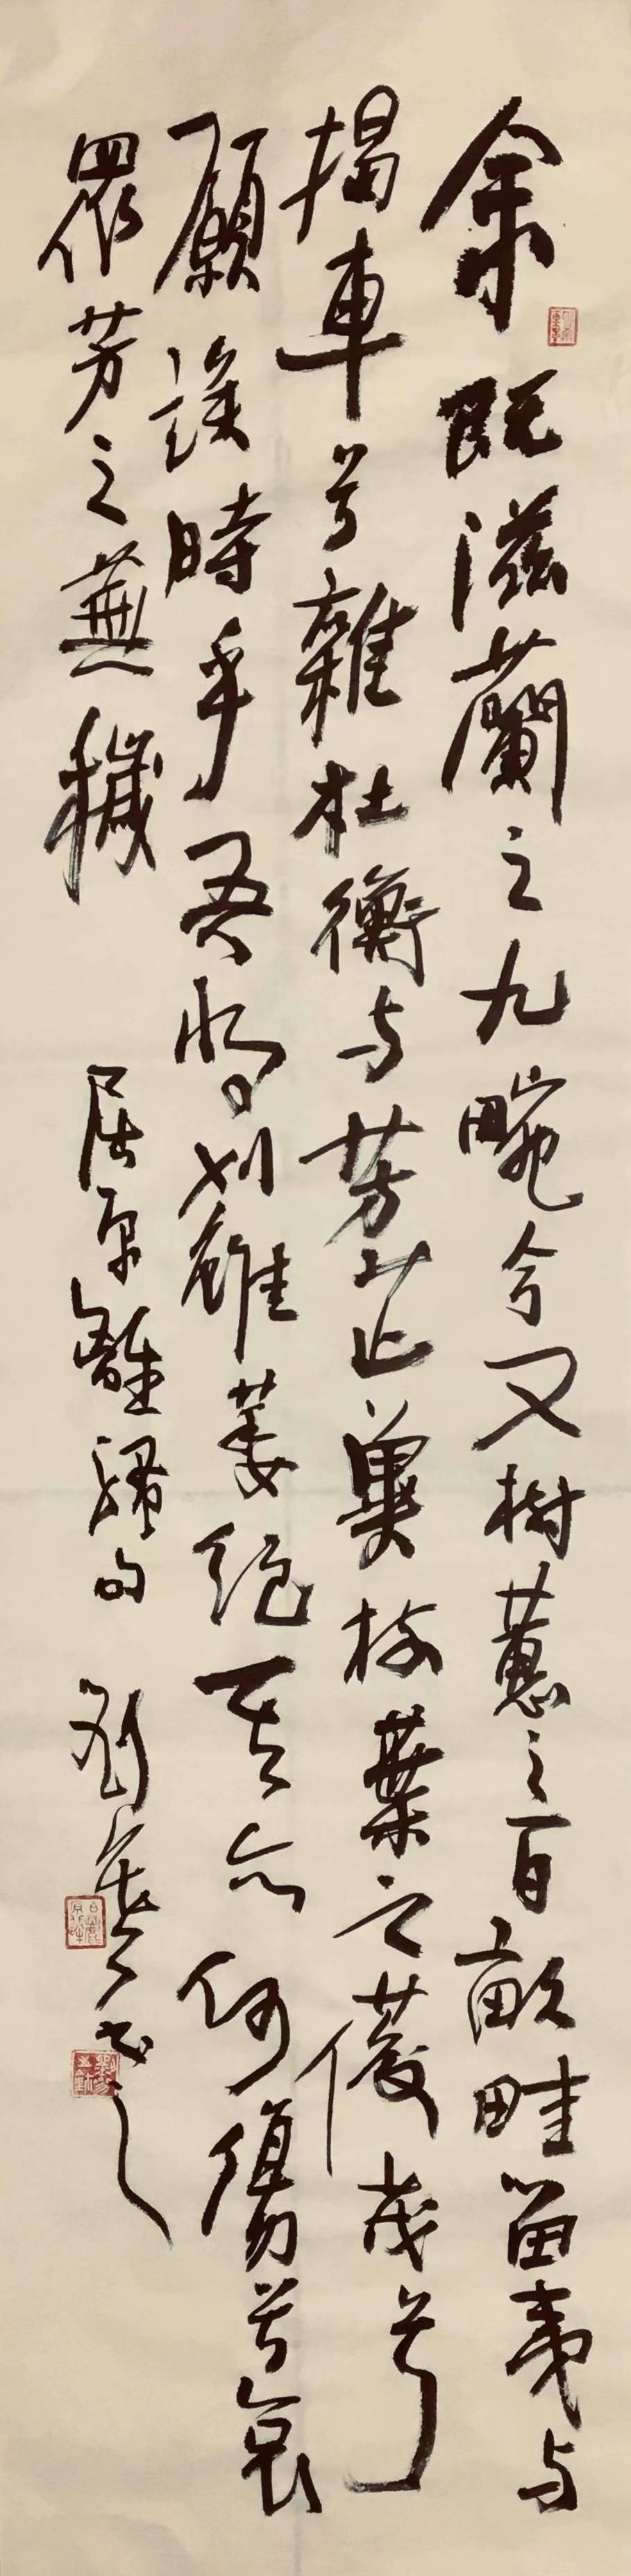 余既滋蘭之九畹兮又樹蕙之百畝畦留夷与
揭車兮雜杜衡与芳芷冀枝葉之葰茂兮
願竢時乎吾將刈雖萎絕其亦何傷兮哀
眾芳之蕪穢 屈原離騷句 劉書之